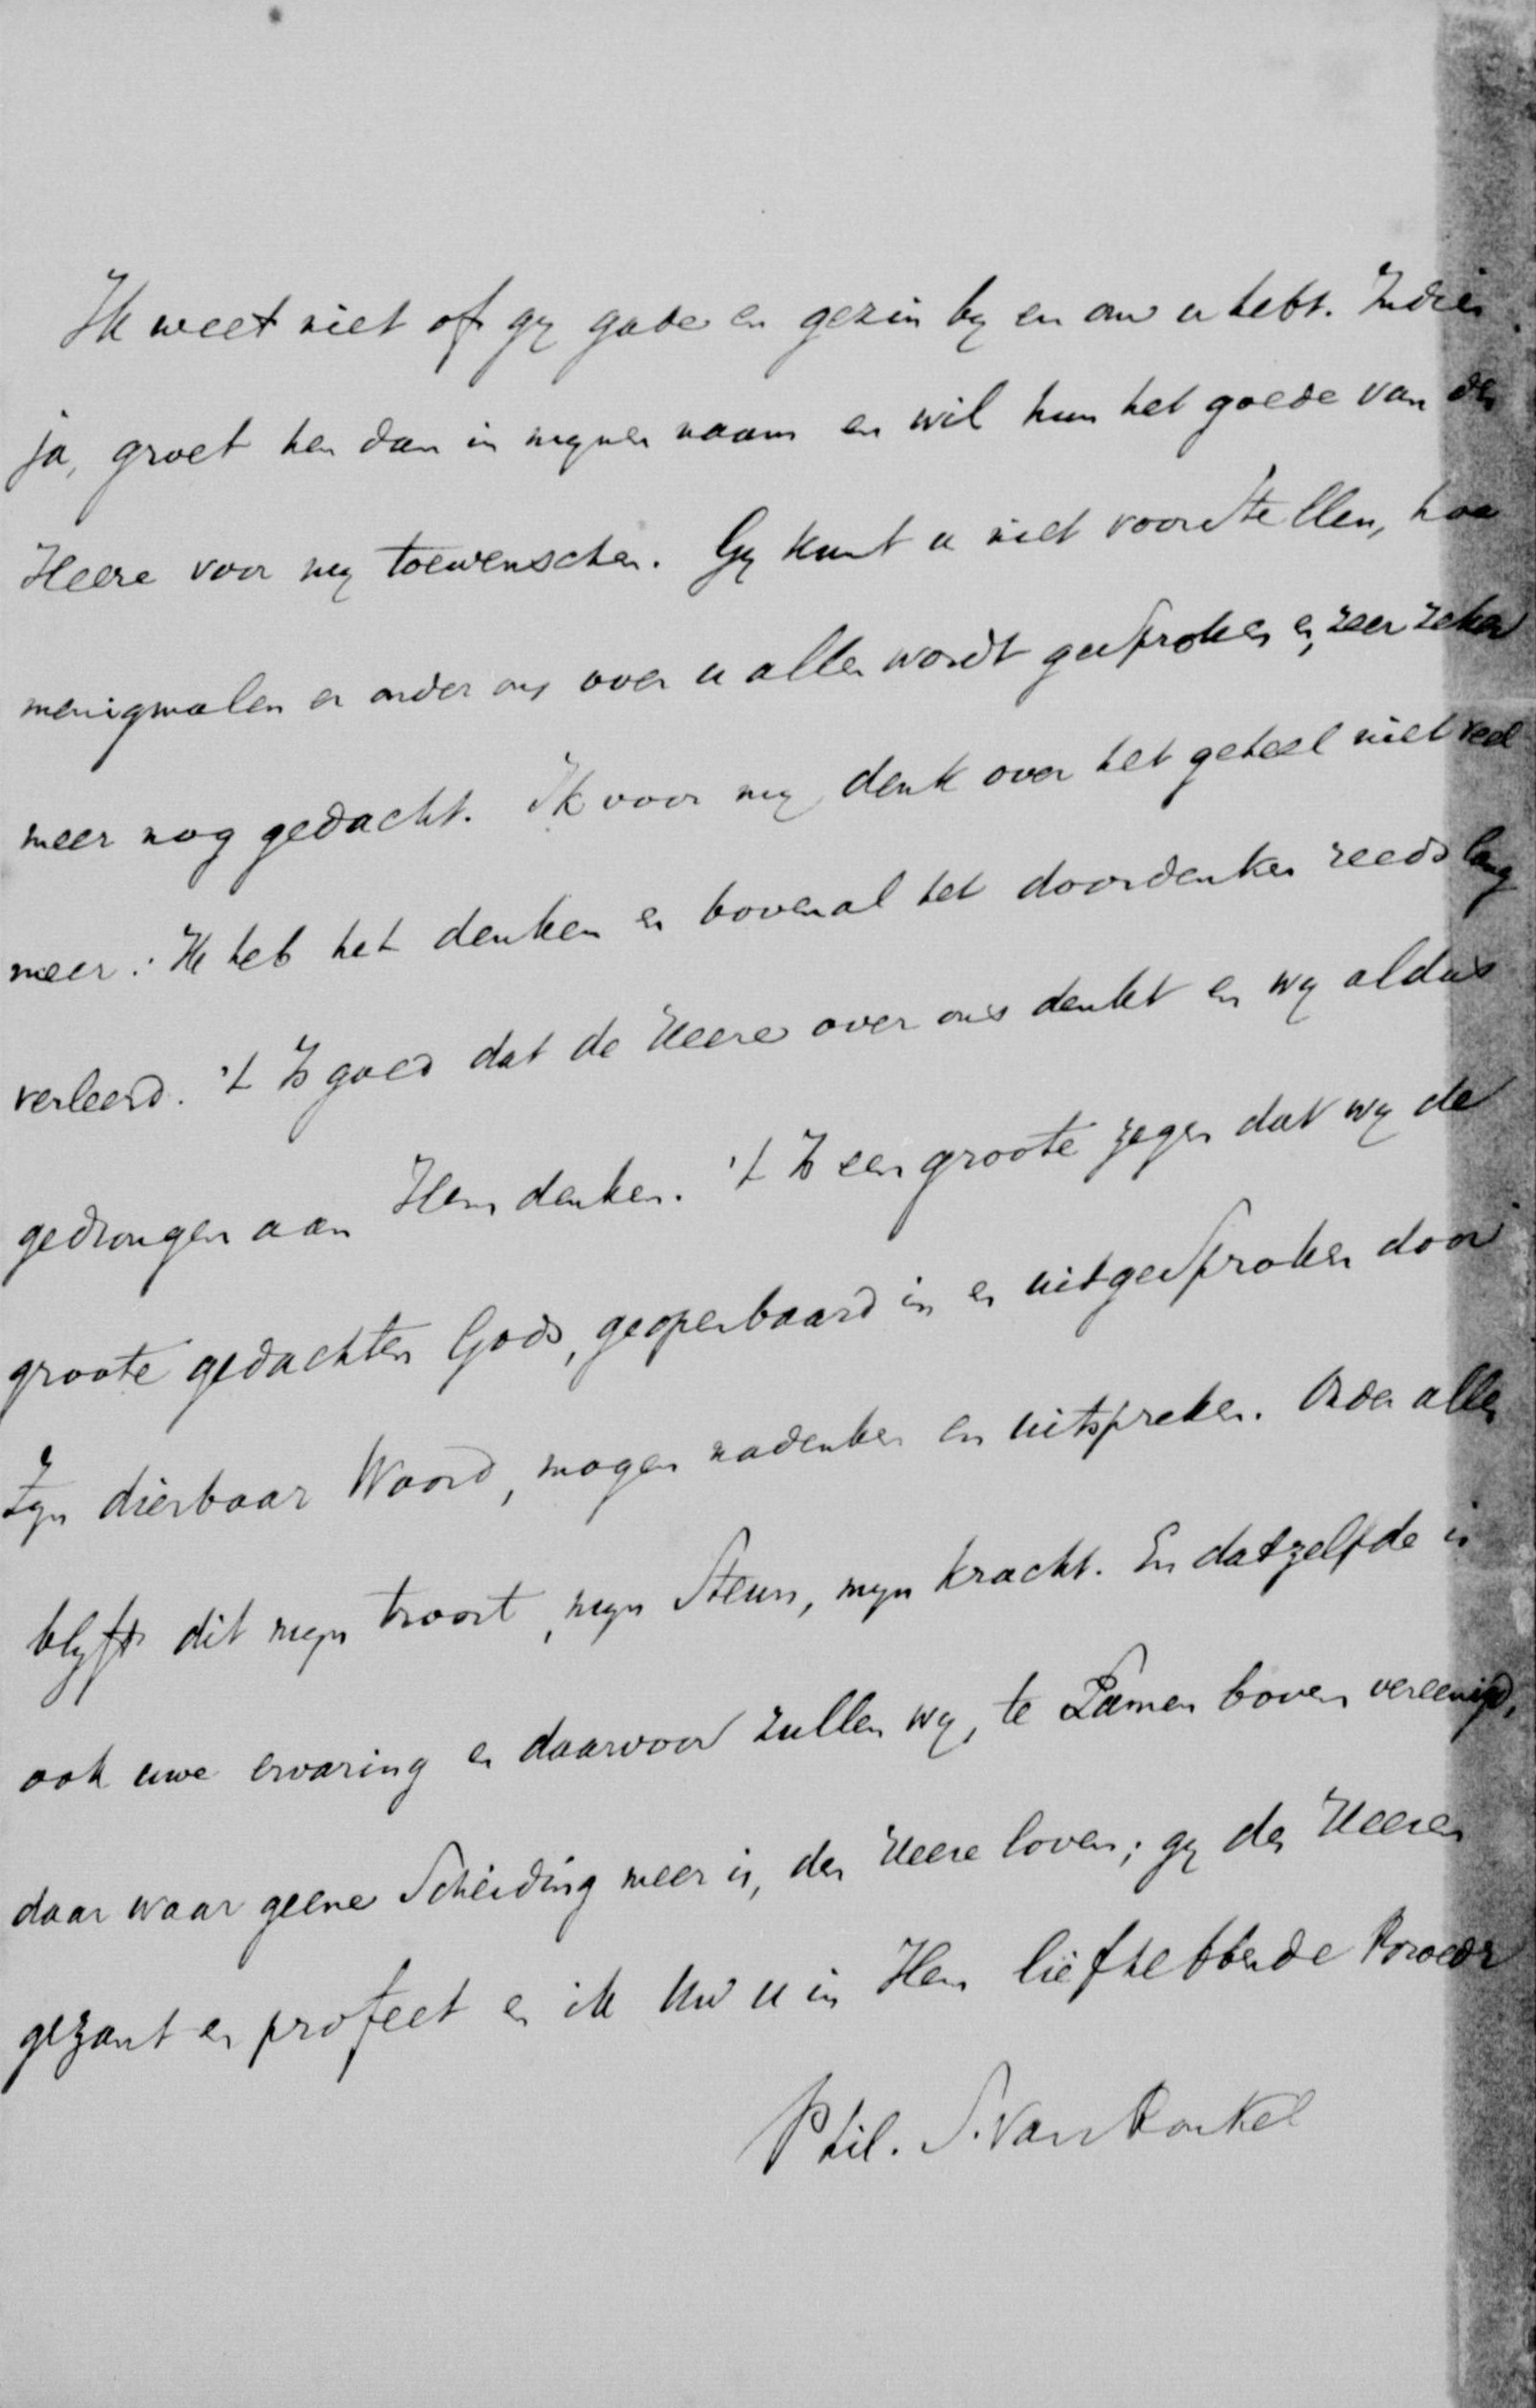 Ik weet niet of gy gade en gezin by en om u hebt. Indien
ja, groet hen dan in mynen naam en wil hun het goede van den
Heere voor my toewenschen. Gy kunt u niet voorstellen, hoe
menigmalen er onder ons over u allen wordt gesproken en, zeer zeker
meer nog gedacht. Ik voor my denk over het geheel niet veel
meer: Ik heb het denken en bovenal het doordenken reeds lang
verleerd. 't Is goed dat de Heere over ons denkt en wy aldus
gedrongen aan Hem denken. 't Is een groote zegen dat wy de
groote gedachten Gods, geopenbaard in en uitgesproken door
Zyn dierbaar Woord, mogen nadenken en uitspreken. Onder alles
blyft dit myn troost, myn steun, myn kracht. En datzelfde is
ook uwe ervaring en daarvoor zullen wy, te Samen boven vereenigd,
daar waar geene Scheiding meer is, den Heere loven; gy des Heeren
gezant en profeet en ik Uw u in Hem liefhebbende Broeder
Phil. S. van Ronkel